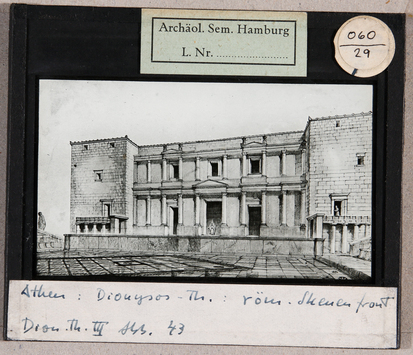 Archäol. Sem. Hamburg
L. Nr. ........................
060
29
Athen : Dionysos - Th. : röm. Skenenfront
Dion. Th. III Abb. 43